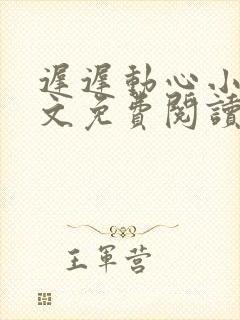 遲遲動心小
文免費閱讀
王軍营